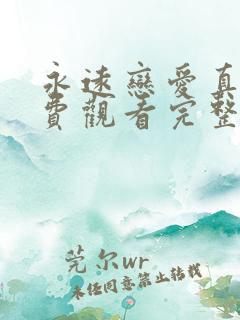 永遠戀愛真
費觀看完整
莞尔wr
未经同意禁止转载